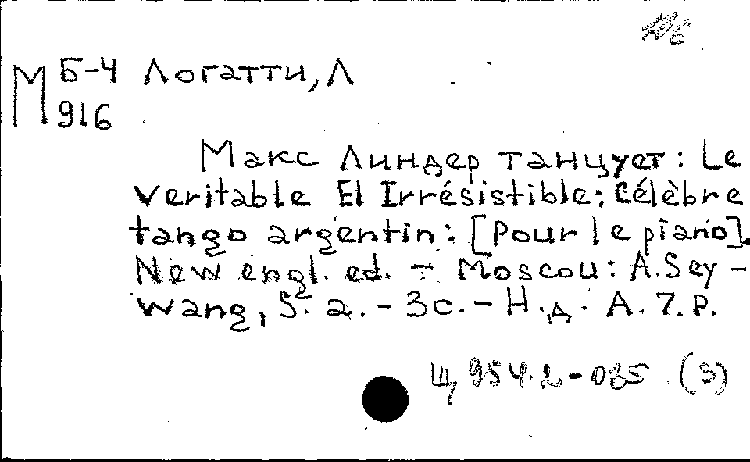 М Б-4 Логатти, Л
916
Макс Линдер танцует: Le
veritable El Irrésistible: Célèbre
tango argentin: [Pour le piano].
New engl. ed. - Moscou: A. Sey-
wang, S. a. - 3с. - Н.д. А. 7. Р.
Ц 954.2-085 (3)